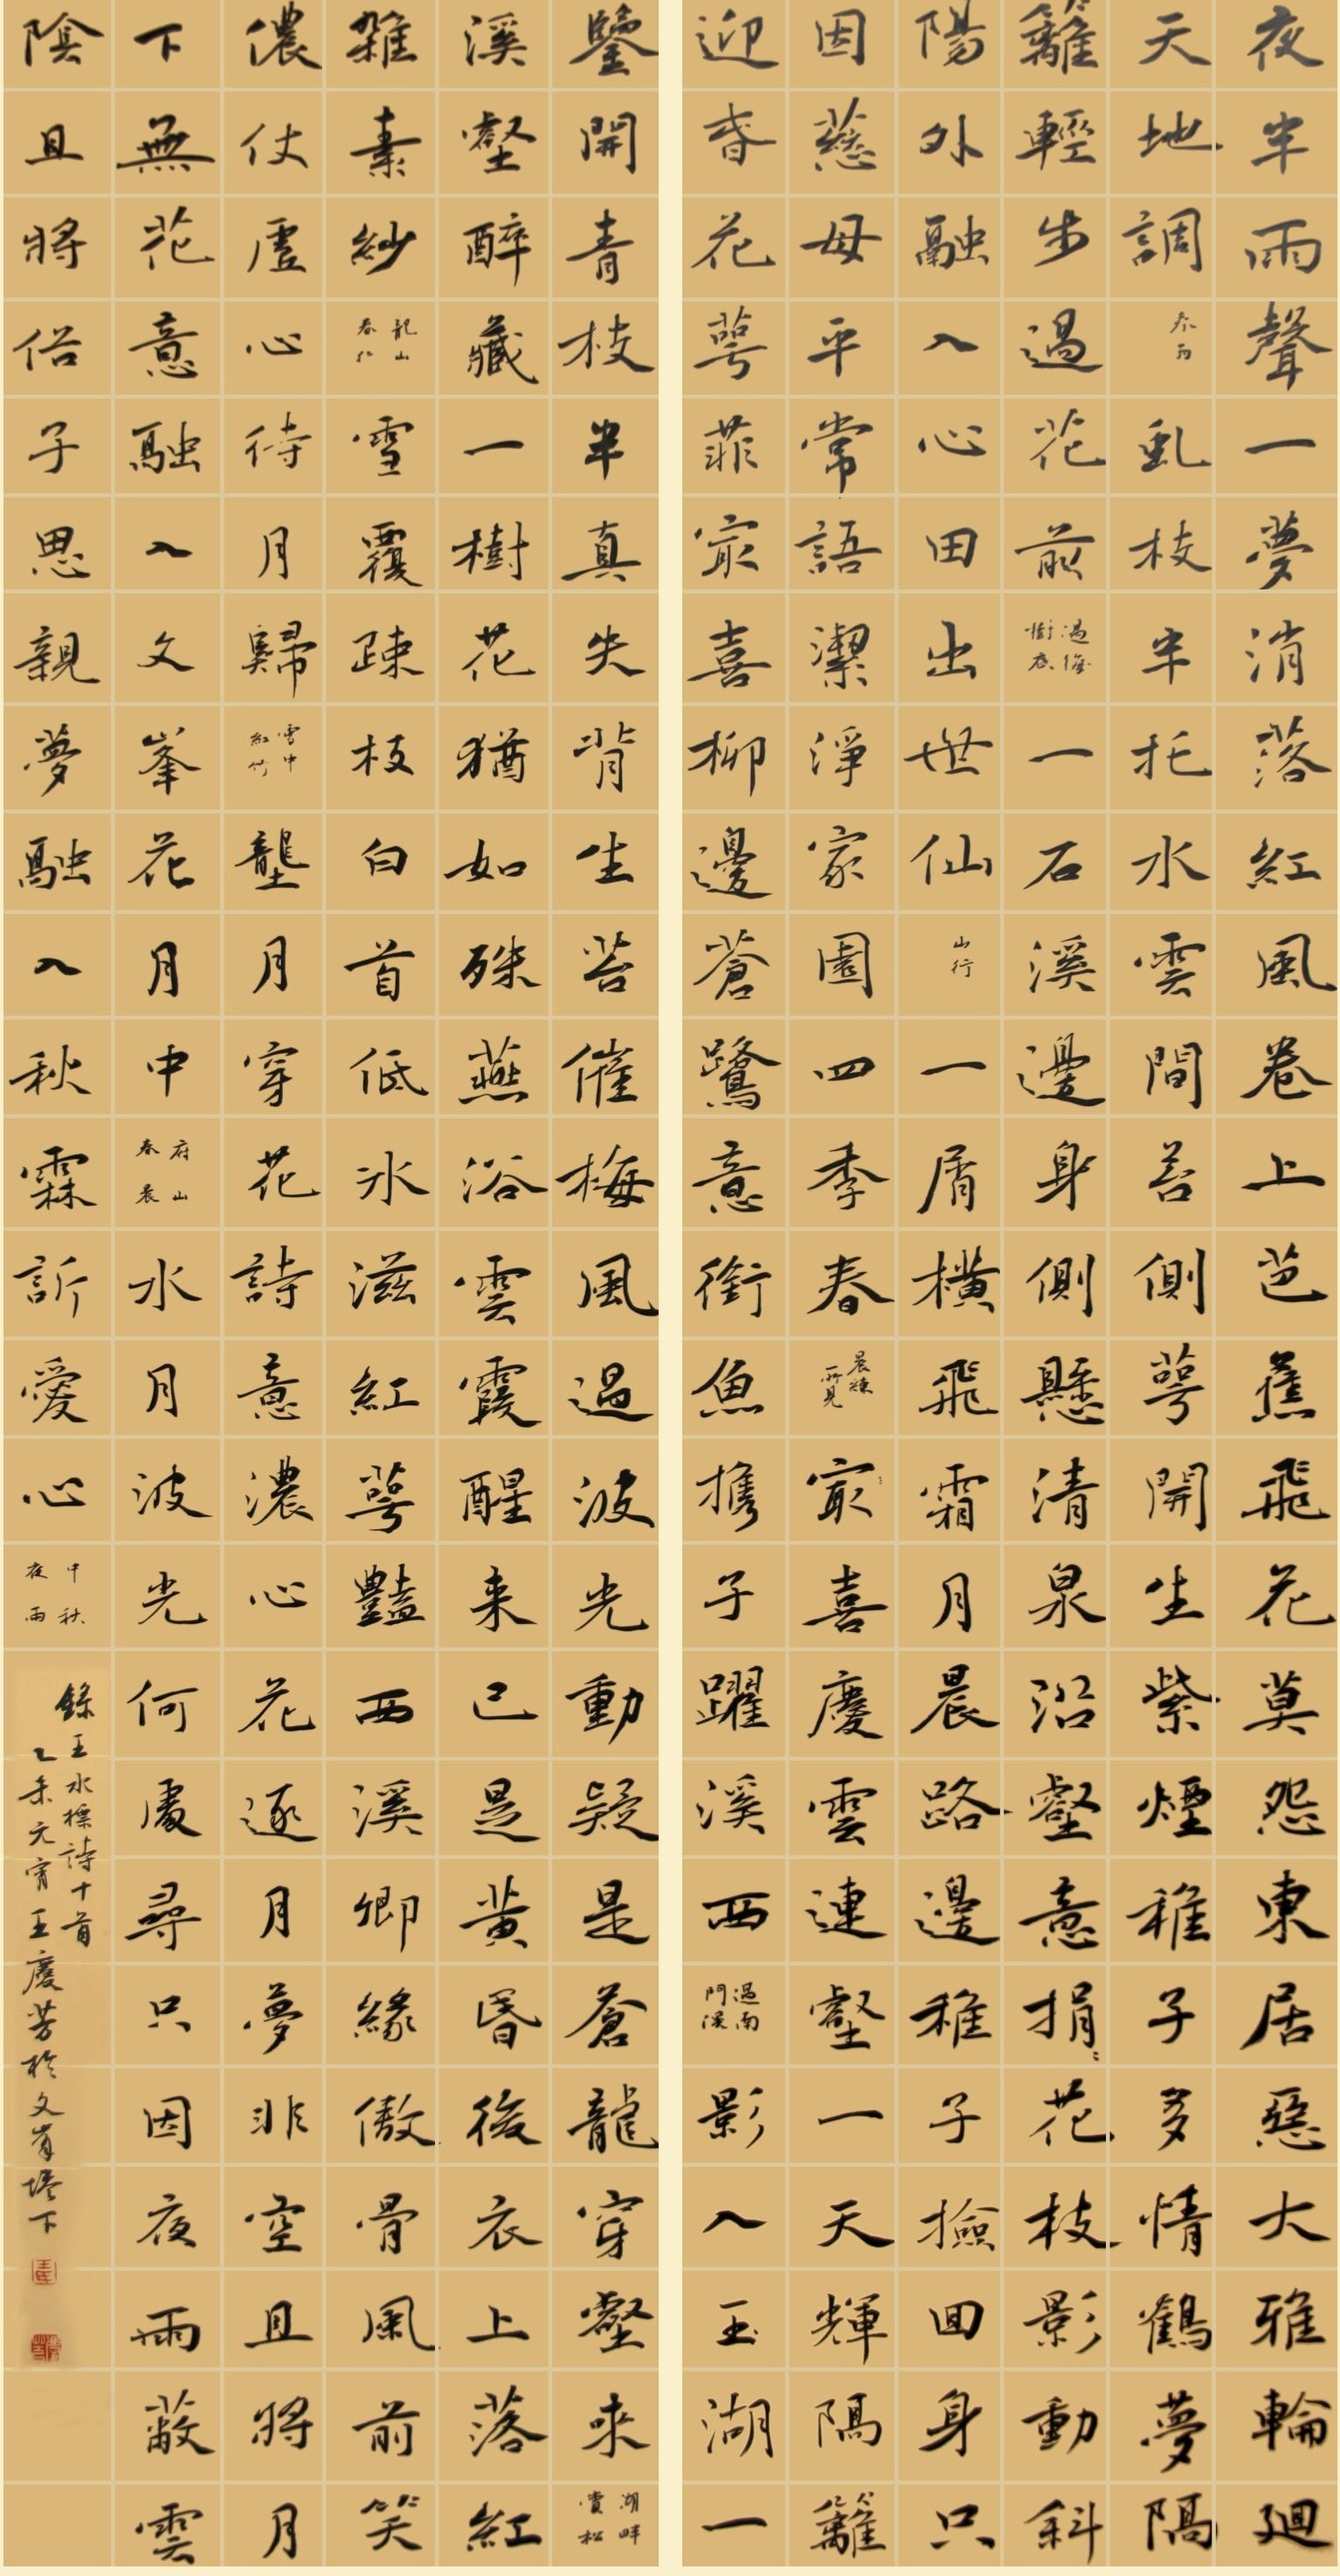 夜半雨聲一夢消落紅風卷上芭蕉飛花莫怨東居惡大雅輪廻
天地調 春雨 乱枝半托水雲間若側萼開生紫煙稚子多情鶴夢隔
籬輕步過花前 過梅樹底 一石溪邊身側懸清泉沿壑意捐〻花枝影動斜
陽外融入心田出世仙 山行 一屑橫飛霜月晨路邊稚子撿回身只
因慈母平常語潔淨家園四季春 晨煉所見 最喜慶雲連壑一天輝隔籬
迎春花萼菲最喜柳邊蒼鷺意銜魚攜子躍溪西 過南門溪 影入玉湖一
鑒開青枝半真失背生苔催梅風過波光動疑是蒼龍穿壑來 湖畔賞松
溪壑醉藏一樹花猶如殊燕浴雲霞醒来已是黃昏後衣上落紅
雜素紗 龍山春行 雪覆疎枝白首低冰滋紅萼豔西溪卿緣傲骨風前笑
儂仗虛心待月歸 雪中紅竹 壟月穿花詩意濃心花逐月夢非空且將月
下無花意融入文峯花月中 府山春晨 水月波光何處尋只因夜雨蔽雲
陰且將俗子思親夢融入秋霖訴愛心 中秋夜雨
錄王水標詩十首
乙未元宵王慶芳於文峯塔下